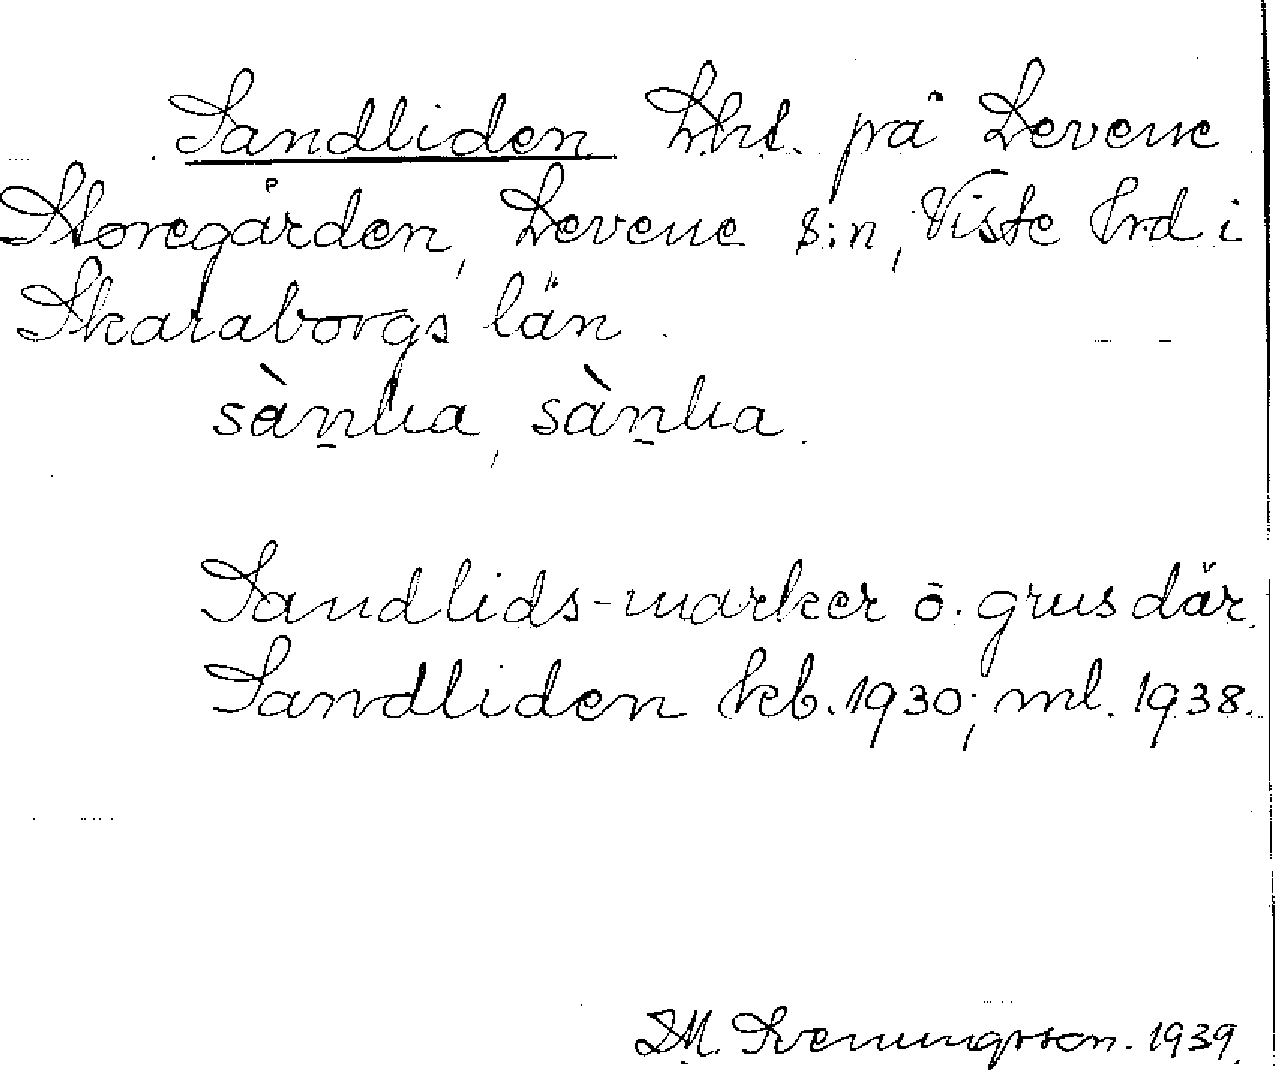 Sandliden Lht. på Levene
Storegården, Levene s:n, Viste hrd i
Skaraborgs län.
sàn̲lia, sàn̲lia.
Sandlids-marker o. grus där.
Sandliden kb. 1930; ml. 1938.
D.M. Svenningsson. 1939.